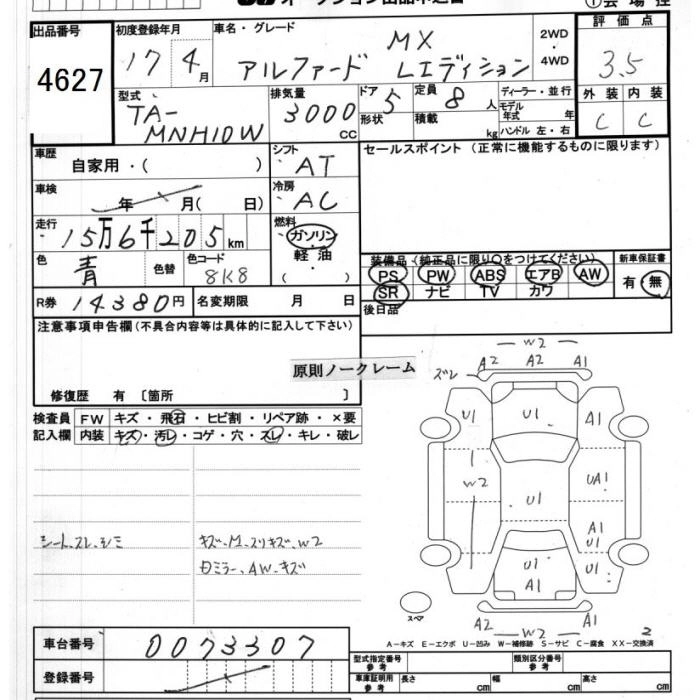 出品番号
4627
初度登録年月
17 4月
車名・グレード
MX
アルファード Lエディション
2WD
・
4WD
評価点
3.5
外装 内装
C C
型式
TA-
MNH10W
排気量
3000
CC
ドア 5
形状
定員 8人
積載 kg
ディーラー・並行
モデル
年式 年
ハンドル 左・右
車歴
自家用・( )
シフト
AT
セールスポイント (正常に機能するものに限ります)
車検
年 月( 日)
冷房
AC
走行
15万6千205km
燃料
ガソリン
軽油
( )
色
青
色替
色コード
8K8
装備品 (純正品に限り○をつけてください)
PS PW ABS エアB AW
SR ナビ TV カワ
新車保証書
有・無
R券 14380円
名変期限 月 日
後日品
注意事項申告欄(不具合内容等は具体的に記入して下さい)
原則ノークレーム
修復歴 有 〔箇所 〕
検査員
記入欄
FW キズ・飛石・ヒビ割・リペア跡・×要
内装 キズ・汚レ・コゲ・穴・スレ・キレ・破レ
シートスレ、シミ
キズ、M、スリキズ、W2
ミラー、AW、キズ
W2
A2 A2 A1
ズレ
U1 U1 A1
W2 UA1
U1 A1
U1
U1 U1
A1
A2 W2 A1
スペア
2
A-キズ E-エクボ U-凹み W-補修跡 S-サビ C-腐食 XX-交換済
車台番号
0073307
登録番号
型式指定番号
参考
類別区分番号
参考
車庫証明用
参考
長さ cm
幅 cm
高さ cm